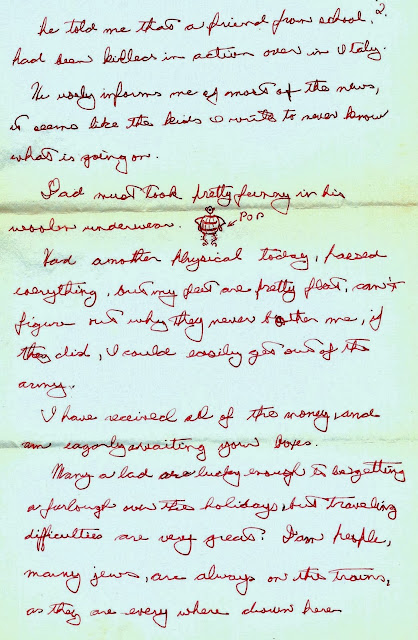 2.
he told me that a friend from school,
had been killed in action over in Italy.
He usaly informs me of most of the news,
it seems like the kids I write to never know
what is going on.
Dad must look pretty funny in his
woolen underwear. POP
Had another physical today, passed
everything, but my feet are pretty flat, can't
figure out why they never bother me, if
they did, I could easily get out of the
army.
I have received all of the money, and
am eagerly awaiting your boxes.
Many a lad are lucky enough to be getting
a furlough over the holidays, but traveling
difficulties are very great? people,
many jews, are always on the trains,
as they are every where down here